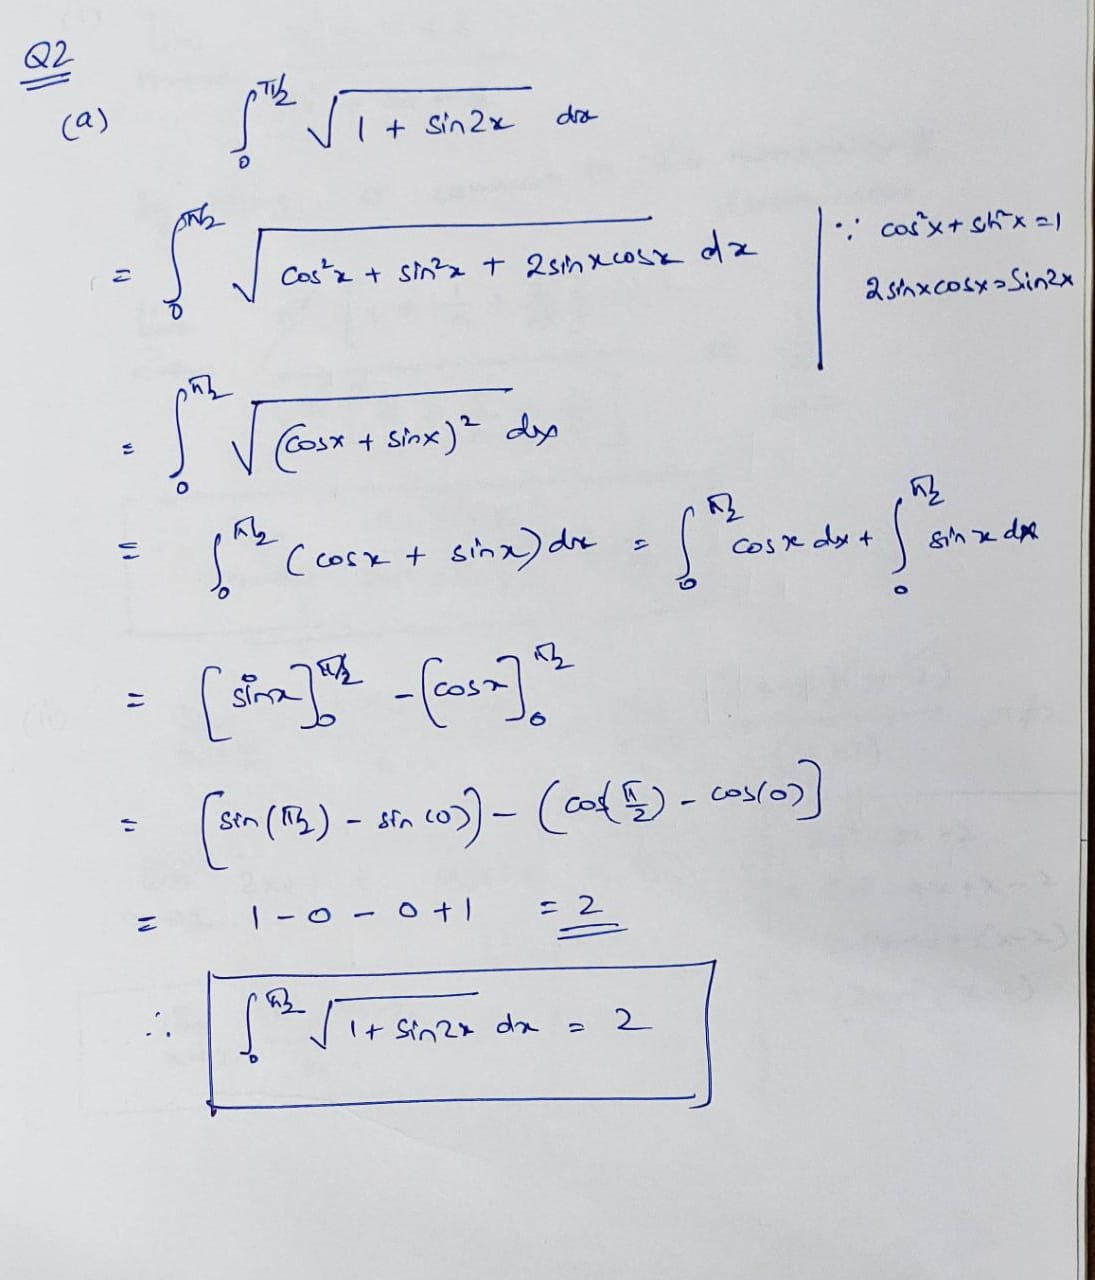 Q2
(a) ∫₀^{π/2} √(1 + sin2x) dx
= ∫₀^{π/2} √(cos²x + sin²x + 2sinxcosx) dx | ∵ cos²x + sin²x = 1
2sinxcosx = Sin2x
= ∫₀^{π/2} √((cosx + sinx)²) dx
= ∫₀^{π/2} (cosx + sinx) dx = ∫₀^{π/2} cosx dx + ∫₀^{π/2} sinx dx
= [sinx]₀^{π/2} - [cosx]₀^{π/2}
= [sin(π/2) - sin(0)] - (cos(π/2) - cos(0)]
= 1 - 0 - 0 + 1 = 2
∴ ∫₀^{π/2} √(1 + sin2x) dx = 2